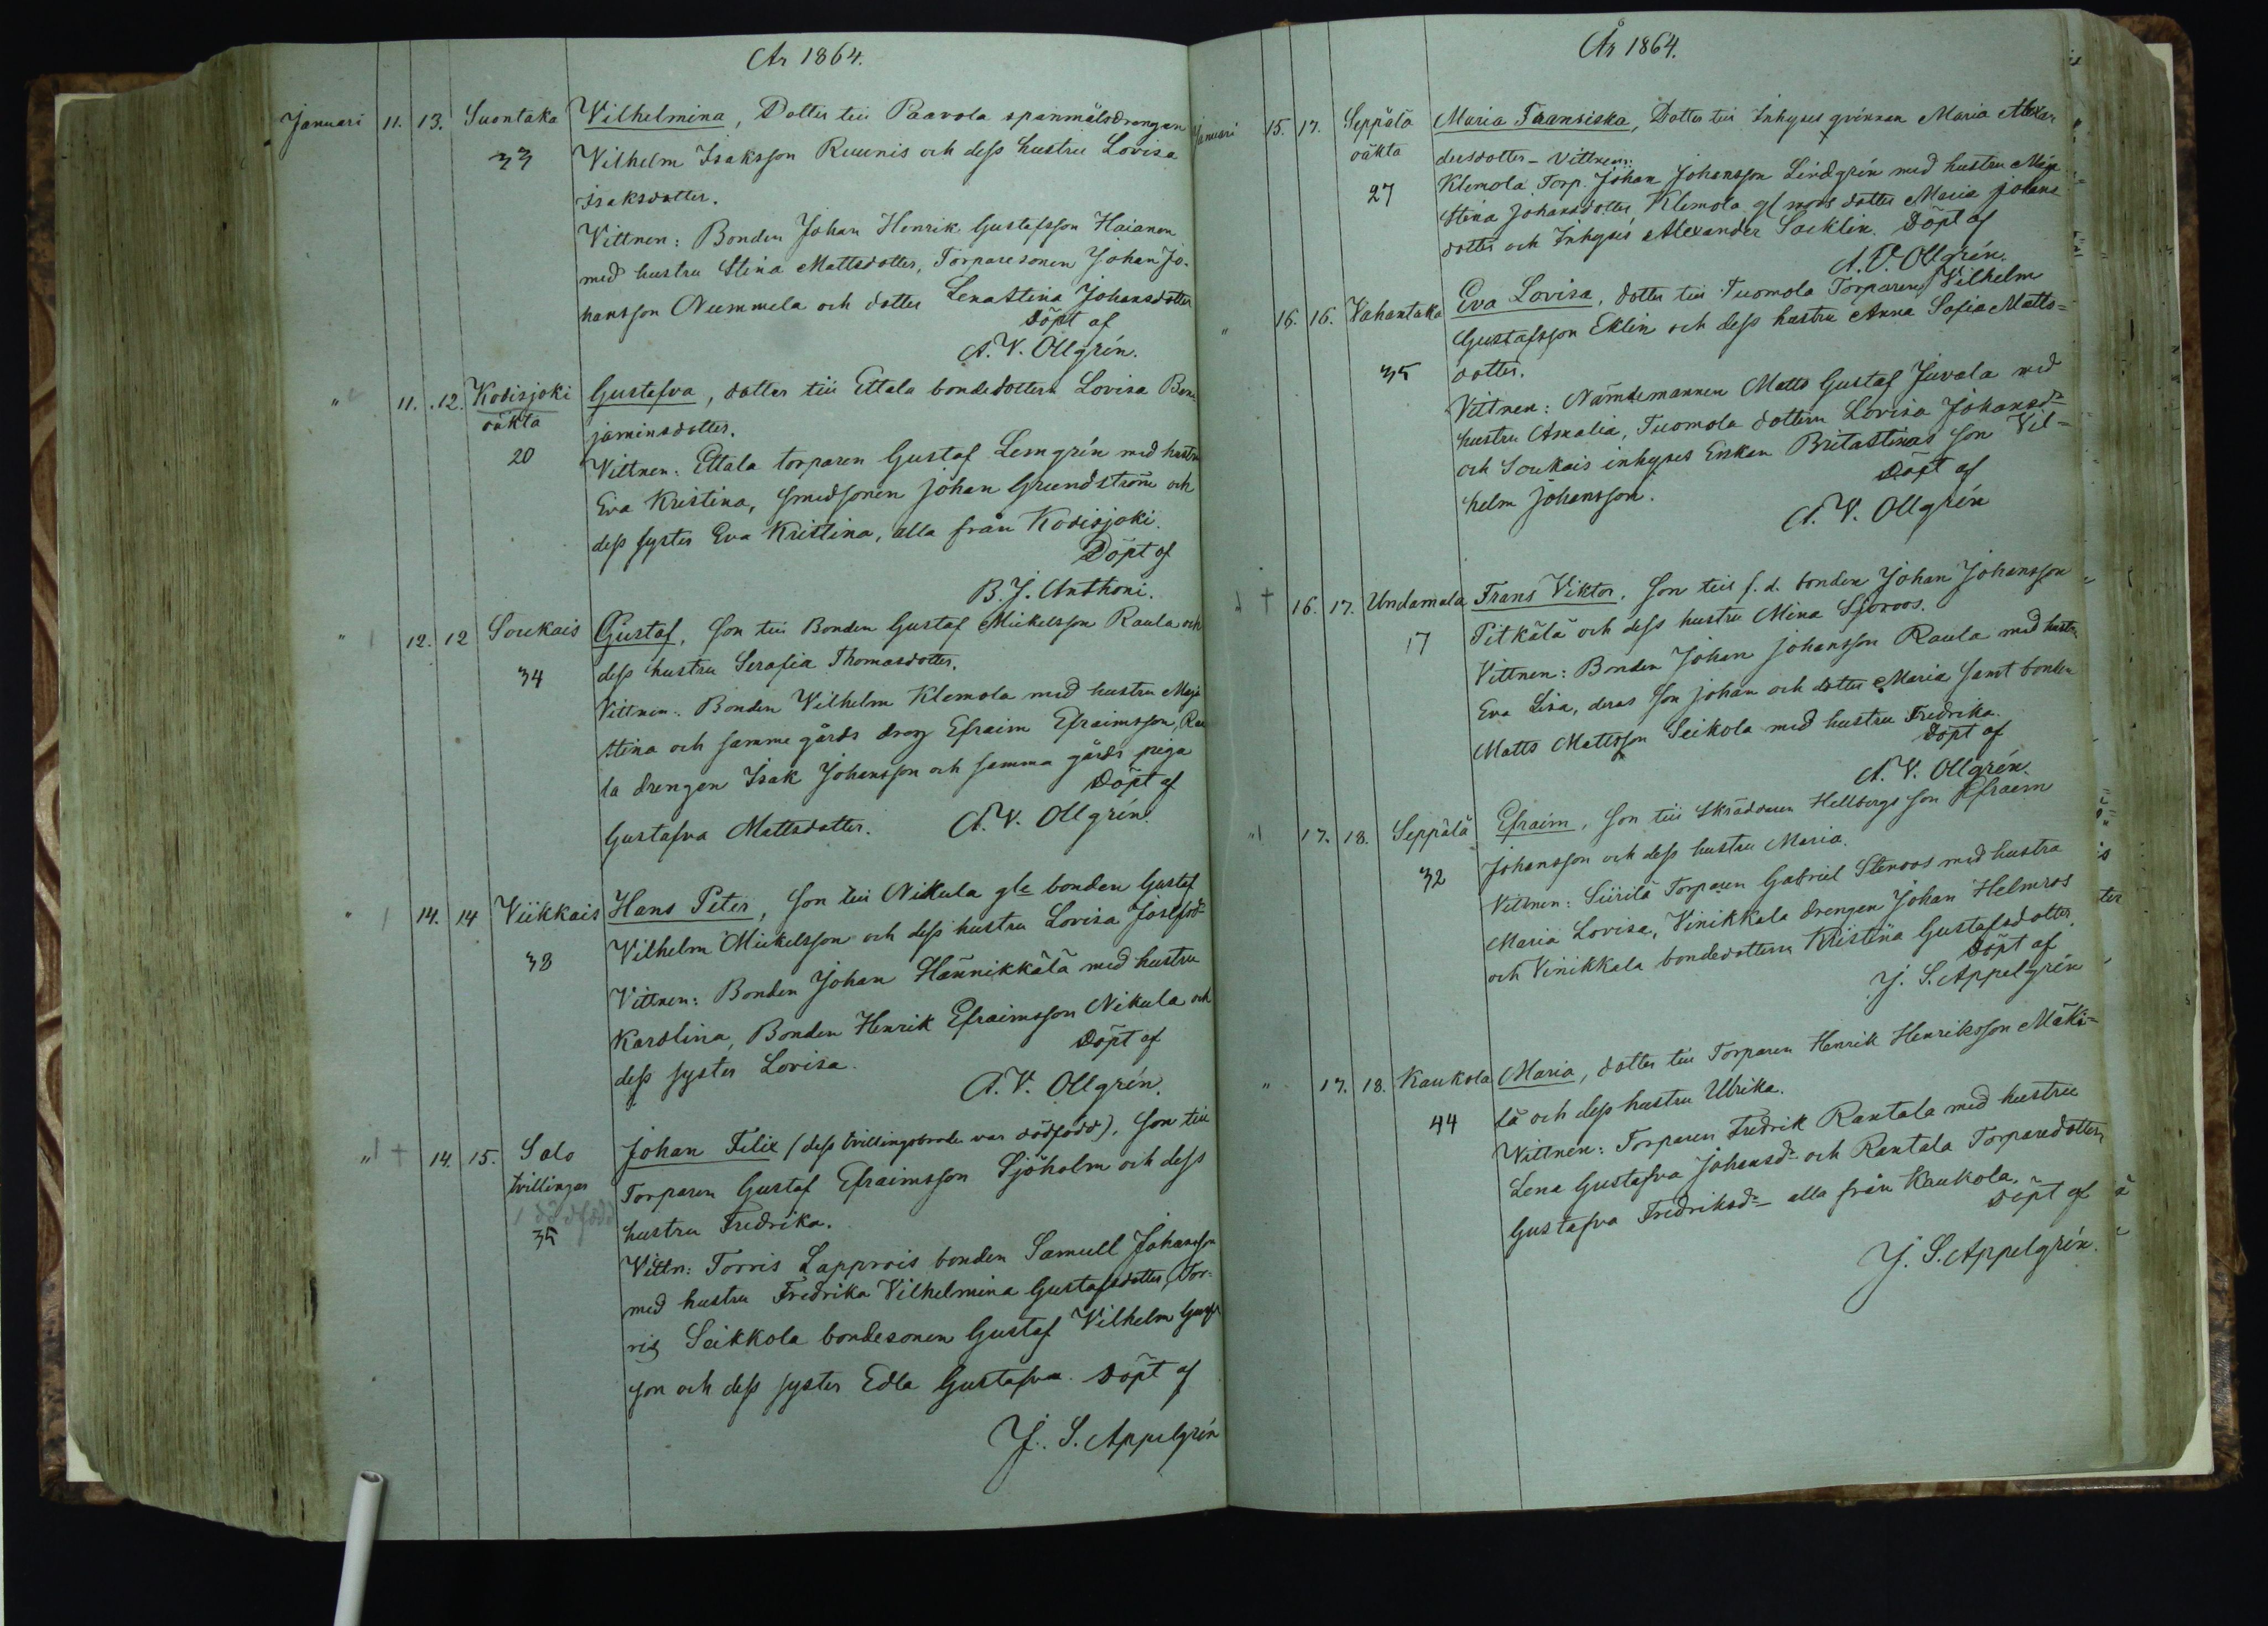 År 1864.
Januari 11. 13. Suontaka Vilhelmina, Dotter till Paavola spanmålsdrängen
33 Vilhelm Isaksson Ruunis och dess hustru Lovisa
Isaksdotter.
Vittnen: Bonden Johan Henrik Gustafsson Haianen
med hustru Stina Mattsdotter, Torparesonen Johan Jo-
hansson Nummela och dotter Lena Stina Johansdotter
Döpt af
A. V. Ollgrén.
" 11. 12. Kodisjoki Gustafva, dotter till Ettala bondedottern Lovisa Ben-
oäkta jaminsdotter.
20 Vittnen: Ettala torparen Gustaf Lemgrén med hustru
Eva Kristina, smedsonen Johan Grundström och
dess syster Eva Kristina, alla från Kodisjoki.
Döpt af
B. J. Anthoni.
" 12. 12 Soukais Gustaf, Son till Bonden Gustaf Mickelsson Raula och
34 dess hustru Serafia Thomasdotter.
Vittnen: Bonden Vilhelm Klemola med hustru Maja
Stina och samma gårds dräng Efraim Efraimsson, Rau
la drengen Isak Johansson och samma gårds piga
Döpt af
Gustafva Mattsdotter. A. V. Ollgrén.
" 14. 14 Viikkais Hans Peter, Son till Nikula gle bonden Gustaf
38 Vilhelm Mickelsson och dess hustru Lovisa Josefsdr
Vittnen: Bonden Johan Hännikkälä med hustru
Karolina, Bonden Henrik Efraimsson Nikula och
dess syster Lovisa. Döpt af
A. V. Ollgrén.
" 1 + 14. 15. Salo Johan Felix (dess tvillingsbroder var dödfödd), Son till
tvillingar Torparen Gustaf Efraimsson Sjöholm och dess
1 dödfödd
35 hustru Fredrika.
Vittn: Torris Lapprois bonden Samuel Johansson
med hustru Fredrika Vilhelmina Gustafsdotter, Tor-
ris Seikkola bondesonen Gustaf Vilhelm Gustafs
son och dess syster Edla Gustafva. Döpt af
J. S. Appelgrén
År 1864.
Januari 15. 17. Seppälä Maria Fransiska, Dotter till Inhyses qvinnan Maria Alexan
oäkta dersdotter – Vittnen:
27 Klemola Torp. Johan Johansson Lindgrén med hustru Maja
Stina Johansdotter, Klemola dotter Maria Johans
dotter och Inhyses Alexander Säcklin. Döpt af
A. V. Ollgrén.
" 16. 16. Vahantaka Eva Lovisa, dotter till Tuomola Torparen Vilhelm
Gustafsson Eklin och dess hustru Anna Sofia Matts-
35 dotter.
Vittnen: Nämdemannen Matts Gustaf Juvala med
hustru Amalia, Tuomola dottern Lovisa Johansdr
och Soukais inhyses Enkan Brita Stinas son Vil-
helm Johansson. Döpt af
A. V. Ollgrén
+ 16. 17. Undamala Frans Viktor, Son till f. d. bonden Johan Johansson
17 Pitkälä och dess hustru Mina Sjöroos.
Vittnen: Bonden Johan Johansson Raula med hustru
Eva Lisa, deras son Johan och dotter Maria samt bonden
Matts Mattsson Seikola med hustru Fredrika.
Döpt af
A. V. Ollgrén.
" 17. 18. Seppälä Efraim, Son till Skräddaren Hellbergs son Efraim
32 Johansson och dess hustru Maria.
Vittnen: Siirilä Torparen Gabriel Stenroos med hustru
Maria Lovisa, Vinikkala drengen Johan Helmros
och Vinikkala bondedottern Kristina Gustafsdotter.
Döpt af
J. S. Appelgrén
" 17. 18. Kaukola Maria, dotter till Torparen Henrik Henriksson Mäki-
44 lä och dess hustru Ulrika.
Vittnen: Torparen Fredrik Rantala med hustru
Lena Gustafva Johansdr och Rantala Torparedottern
Gustafva Fredriksdr – alla från Kaukola.
Döpt af
J. S. Appelgrén.